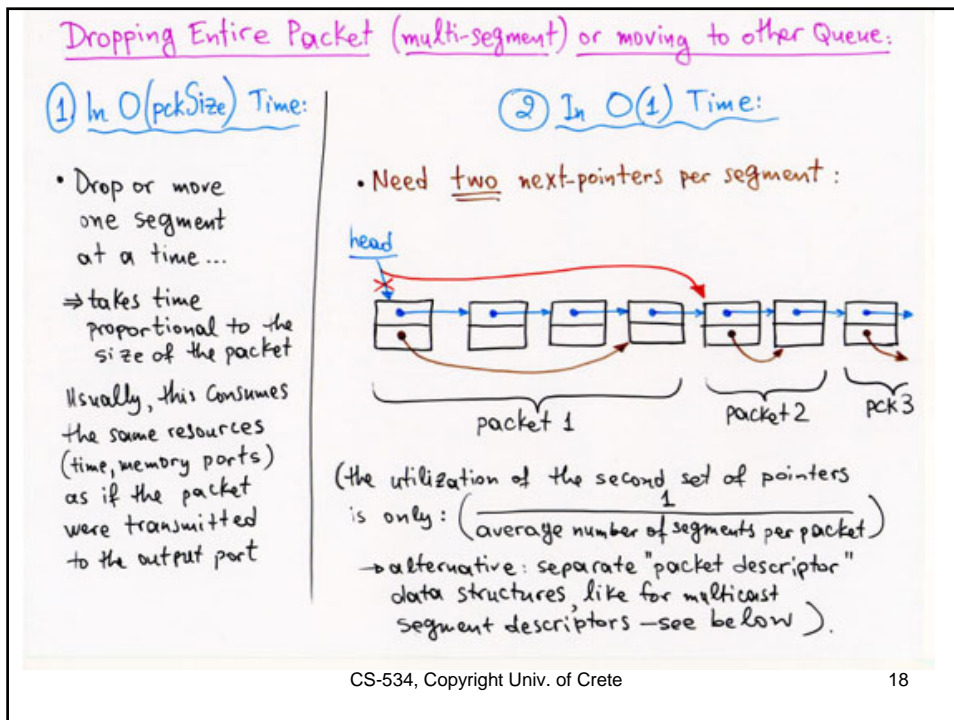 Dropping Entire Packet (multi-segment) or moving to other Queue:
① In O(pckSize) Time:
• Drop or move
one segment
at a time...
⇒ takes time
proportional to the
size of the packet
Usually, this consumes
the same resources
(time, memory ports)
as if the packet
were transmitted
to the output port
② In O(1) Time:
• Need two next-pointers per segment:
head
packet 1
packet 2
pck 3
(the utilization of the second set of pointers
is only: (1 / average number of segments per packet)
→ alternative: separate "packet descriptor"
data structures, like for multicast
segment descriptors – see below).
CS-534, Copyright Univ. of Crete
18